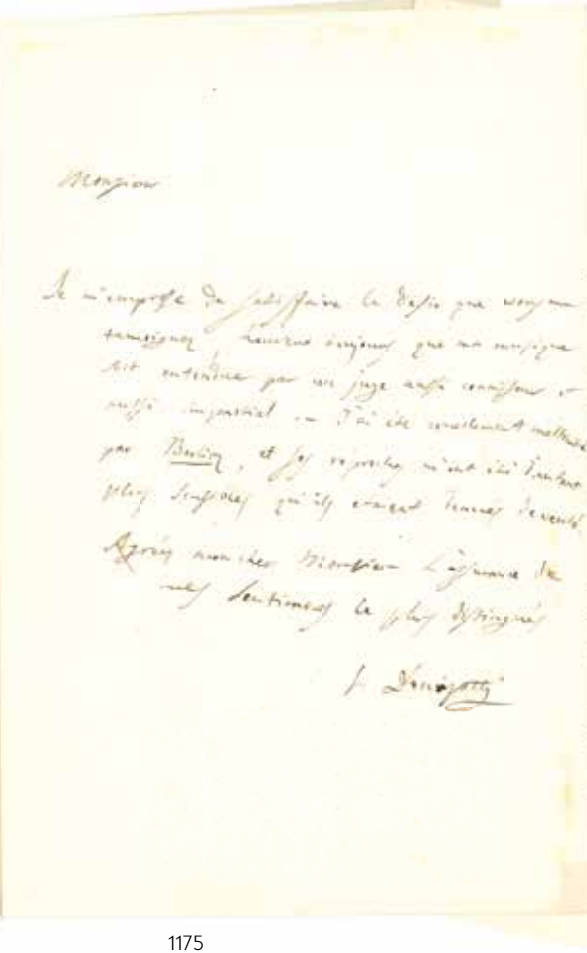 Monsieur
Je m'empresse de satisfaire le désir que vous me
temoignez heureux toujours que ma musique
soit entendue par un juge aussi connaisseur et
aussi impartial J'ai été cruellement maltraité
par Berlioz, et ses m'ont été d'autant
plus qu'ils etaient denués de verité.
Agréez mon cher Monsieur L'assurance de
mes sentimens les plus distingués
1175